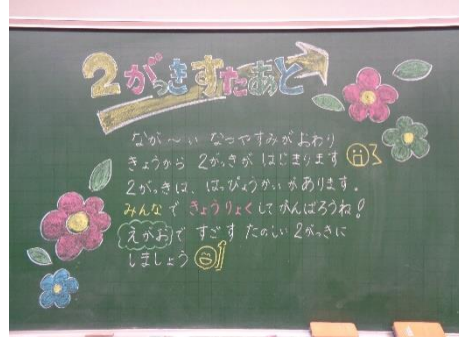 2がっきすたあと
ながーい なつやすみがおわり
きょうから 2がっきが はじまります
2がっきは、はっぴょうかいがあります。
みんなで きょうりょくしてがんばろうね!
えがおで すごす たのしい 2がっきに
しましょう